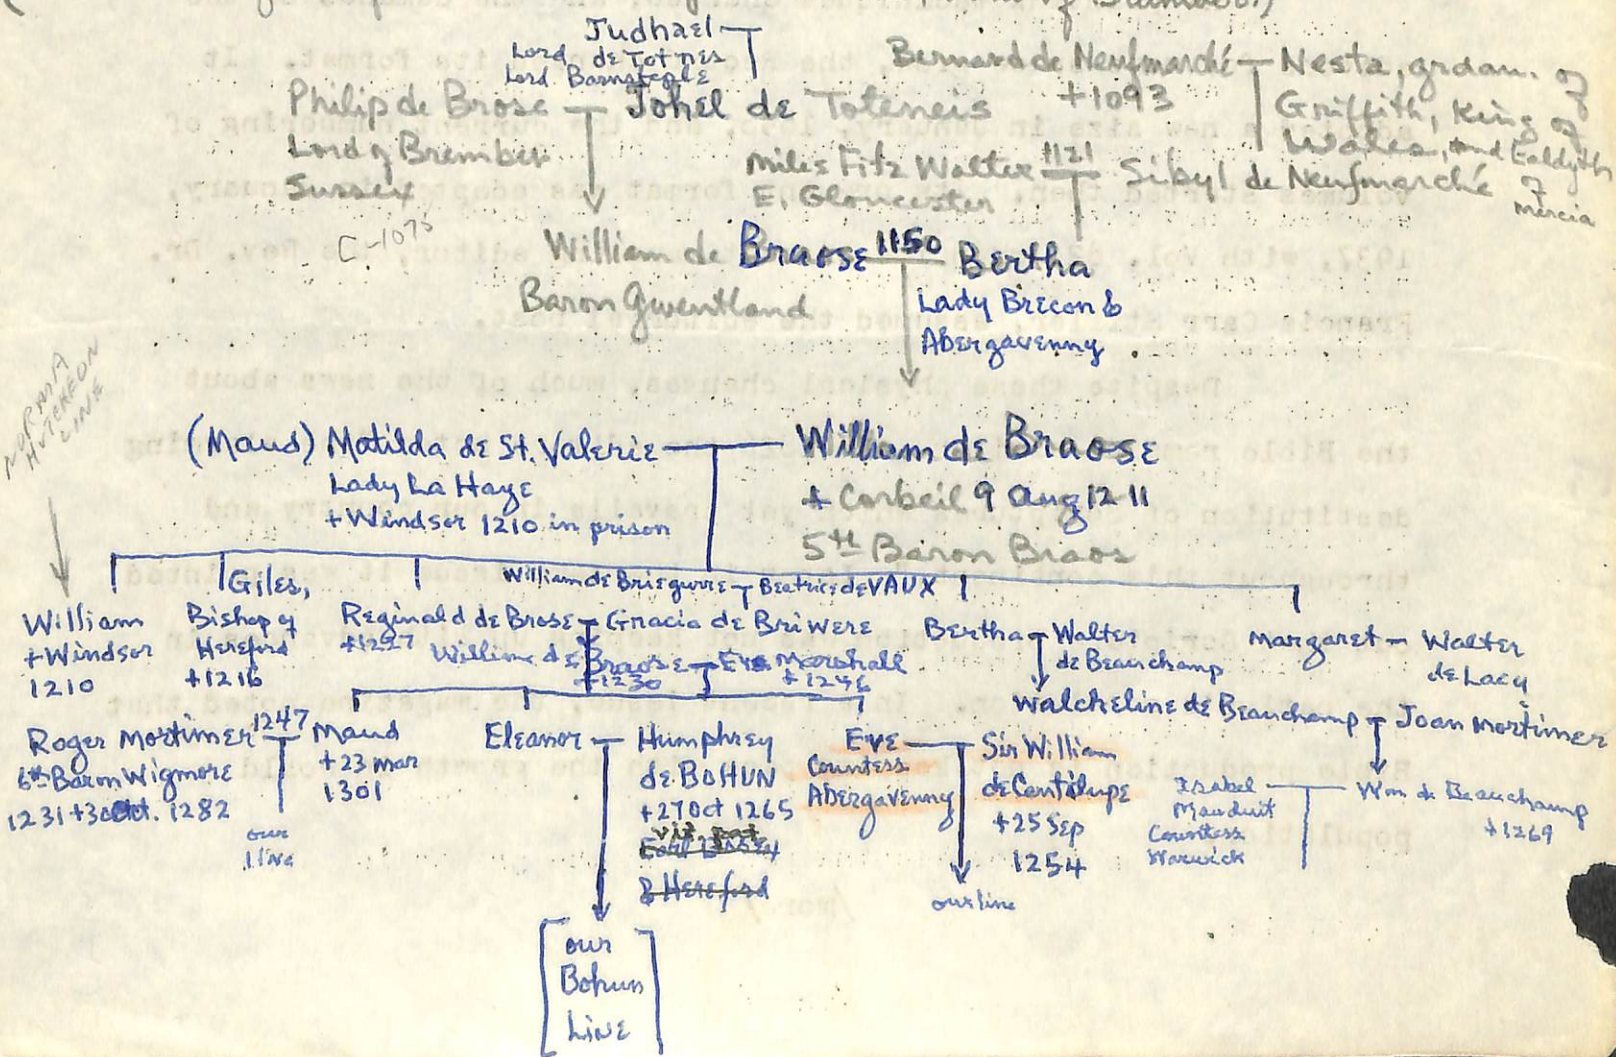 Judhael
Lord de Totnes
Lord Barnstaple
Bernard de Neufmarché
+1093
Nesta, grdau. of
Griffith, King of
Wales, and Ealdyth
of
Mercia
Philip de Brose
Johel de Toteneis
Lord of Bramber
Sussex
C-1075
Miles Fitz Walter 1121 Sibyl de Neufmarché
E. Gloucester
William de Braose 1150 Bertha
Baron Gwentland
Lady Brecon &
Abergavenny
NORMA
HUTCHEON
LINE
(Maud) Matilda de St. Valerie
Lady La Haye
+Windsor 1210 in prison
William de Braose
+ Corbeil 9 Aug 1211
5th Baron Braos
William
+Windsor
1210
Giles,
Bishop of
Hereford
+1216
William de Briegurre Beatrice de VAUX
Reginald de Brose Gracia de Briwere
William de Braose Eve Marshall
+1230 +1246
Bertha Walter
de Beauchamp
Margaret Walter
de Lacy
Walcheline de Beauchamp Joan Mortimer
Roger Mortimer 1247 Maud
6th Baron Wigmore
1231 + Oct. 1282
+23 Mar
1301
our
line
Eleanor Humphrey
de BOHUN
+27 Oct 1265
vit. pat
& Hereford
our
Bohun
LINE
Eve
Countess
Abergavenny
Sir William
de Cantilupe
+25 Sep
1254
our line
Isabel
Mauduit
Countess
Warwick
Wm de Beauchamp
+1269